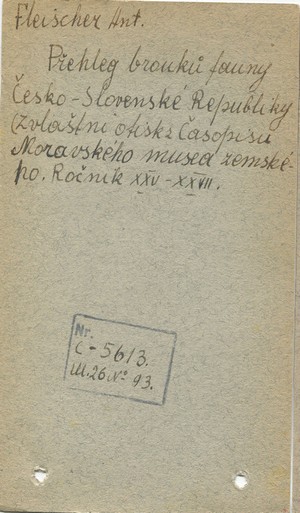 Fleischer Ant.
Přehleg brouků fauny
Česko-Slovenské Republiky
(Zvlaštni otisk z Časopisu
Moravského musea zemské-
ho. Ročnik XXV-XXVII.
Nr.
C-5613.
Ш.26 № 93.